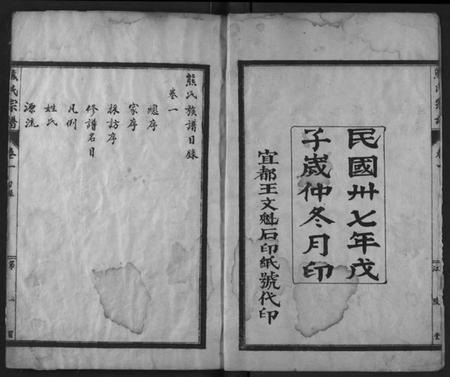 民國卅七年戊
子歲仲冬月印
宜都王文魁石印紙號代印
熊氏族譜目錄
卷一
總序
家序
採訪序
修譜名目
凡例
姓氏
源流